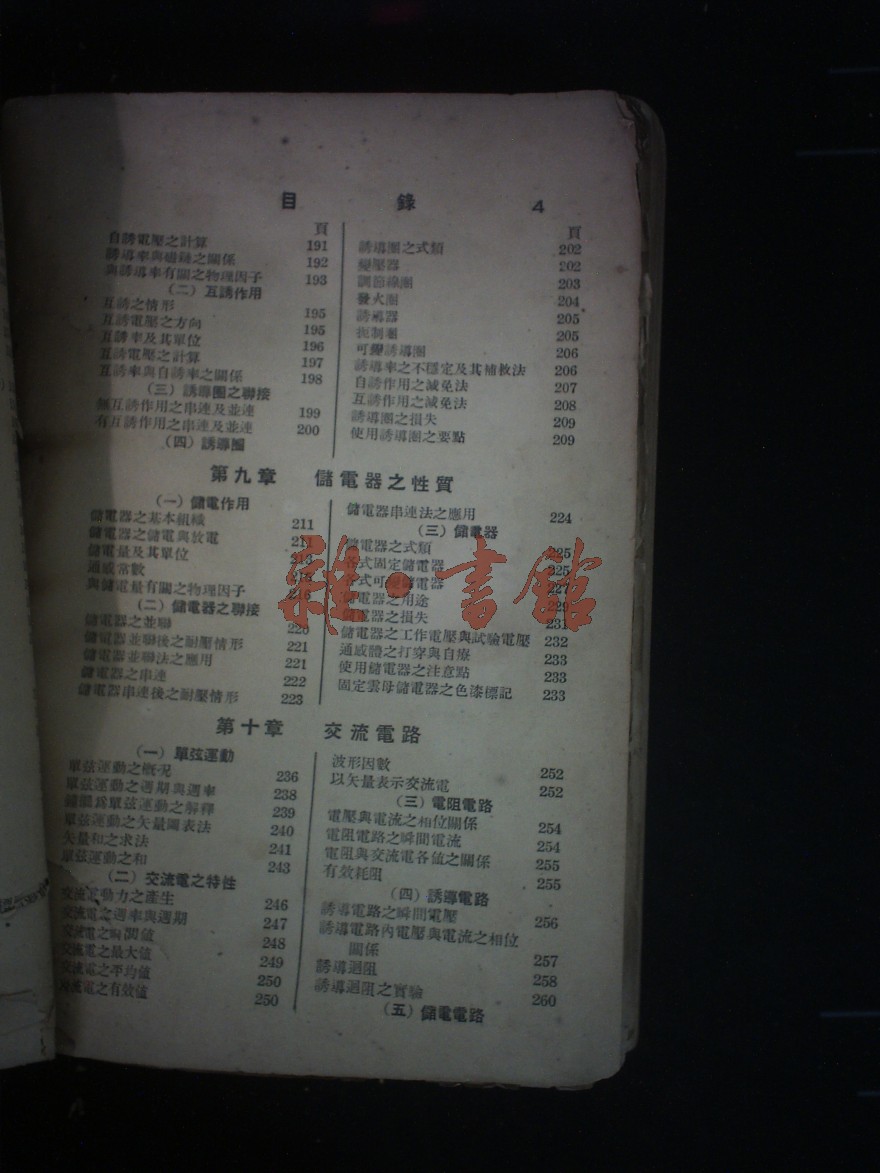 目 錄 4
頁
自誘電壓之計算 191
誘導率與磁鏈之關係 192
與誘導率有關之物理因子 193
（二）互誘作用
互誘之情形 195
互誘電壓之方向 195
互誘率及其單位 196
互誘電壓之計算 197
互誘率與自誘率之關係 198
（三）誘導圈之聯接
無互誘作用之串連及並連 199
有互誘作用之串連及並連 200
（四）誘導圈
頁
誘導圈之式類 202
變壓器 202
調節線圈 203
發火圈 204
誘導器 205
扼制圈 205
可變誘導圈 206
誘導率之不穩定及其補救法 206
自誘作用之減免法 207
互誘作用之減免法 208
誘導圈之損失 209
使用誘導圈之要點 209
第九章 儲電器之性質
（一）儲電作用
儲電器之基本組織 211
儲電器之儲電與放電 211
儲電量及其單位 213
通感常數
與儲電量有關之物理因子 216
（二）儲電器之聯接
儲電器之並聯 220
儲電器並聯後之耐壓情形 221
儲電器並聯法之應用 221
儲電器之串連 222
儲電器串連後之耐壓情形 223
儲電器串連法之應用 224
（三）儲電器
儲電器之式類 225
各式固定儲電器 225
各式可變儲電器 227
儲電器之用途 229
儲電器之損失 231
儲電器之工作電壓與試驗電壓 232
通感體之打穿與自療 233
使用儲電器之注意點 233
固定雲母儲電器之色漆標記 233
第十章 交流電路
（一）單弦運動
單弦運動之概況 236
單弦運動之週期與週率 238
鐘擺爲單弦運動之解釋 239
單弦運動之矢量圖表法 240
矢量和之求法 241
單弦運動之和 243
（二）交流電之特性
交流電動力之產生 246
交流電之週率與週期 247
交流電之瞬間值 248
交流電之最大值 249
交流電之平均值 250
交流電之有效值 250
波形因數 252
以矢量表示交流電 252
（三）電阻電路
電壓與電流之相位關係 254
電阻電路之瞬間電流 254
電阻與交流電各值之關係 255
有效耗阻 255
（四）誘導電路
誘導電路之瞬間電壓 256
誘導電路內電壓與電流之相位
關係 257
誘導迴阻 258
誘導迴阻之實驗 260
（五）儲電電路
雜·書館